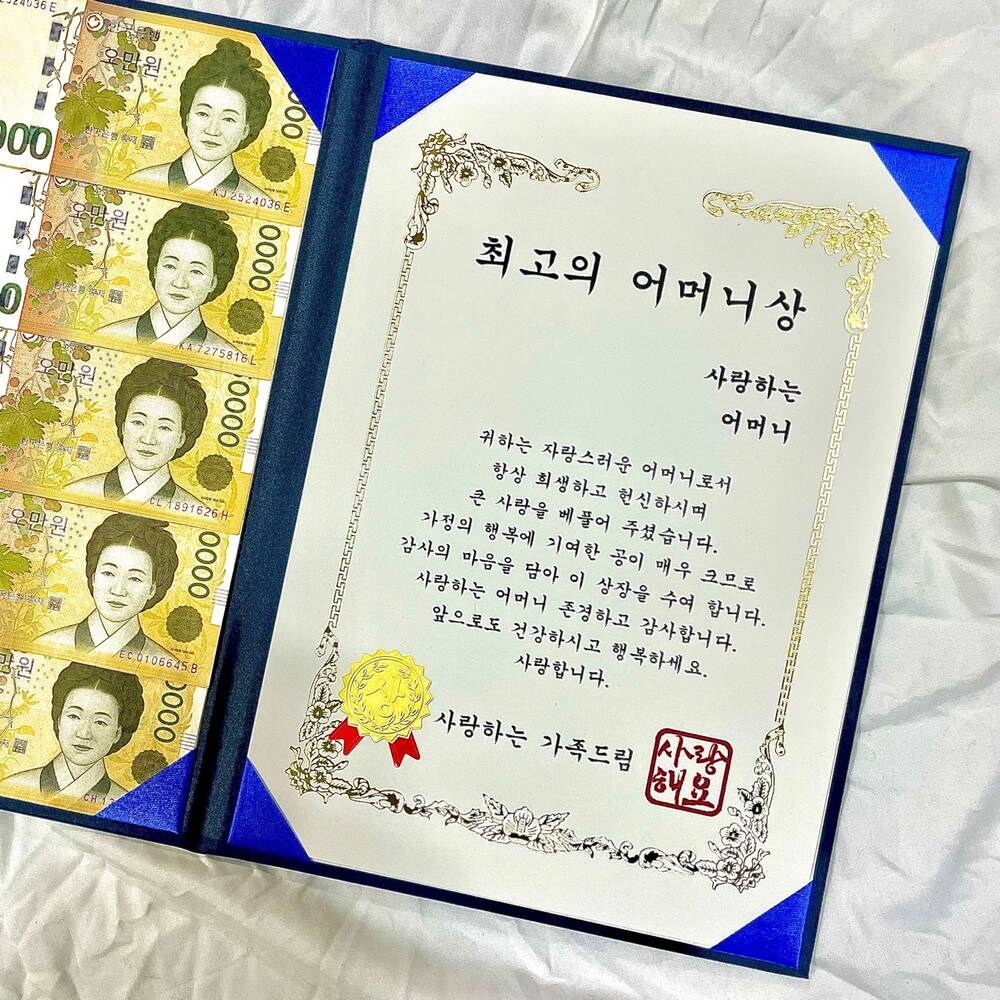 2524036 E
한국은행
오만원
한국은행 총재
000
0000
KJ 2524036 E
오만원
한국은행 총재
0000
0
KA 7275816 L
오만원
한국은행 총재
0000
CL 1891626 H
오만원
한국은행 총재
0000
EC 0106645 B
오만원
0000
CH 1
최고의 어머니상
사랑하는
어머니
귀하는 자랑스러운 어머니로서
항상 희생하고 헌신하시며
큰 사랑을 베풀어 주셨습니다.
가정의 행복에 기여한 공이 매우 크므로
감사의 마음을 담아 이 상장을 수여 합니다.
사랑하는 어머니 존경하고 감사합니다.
앞으로도 건강하시고 행복하세요.
사랑합니다.
상
사랑하는 가족드림
사랑
해요